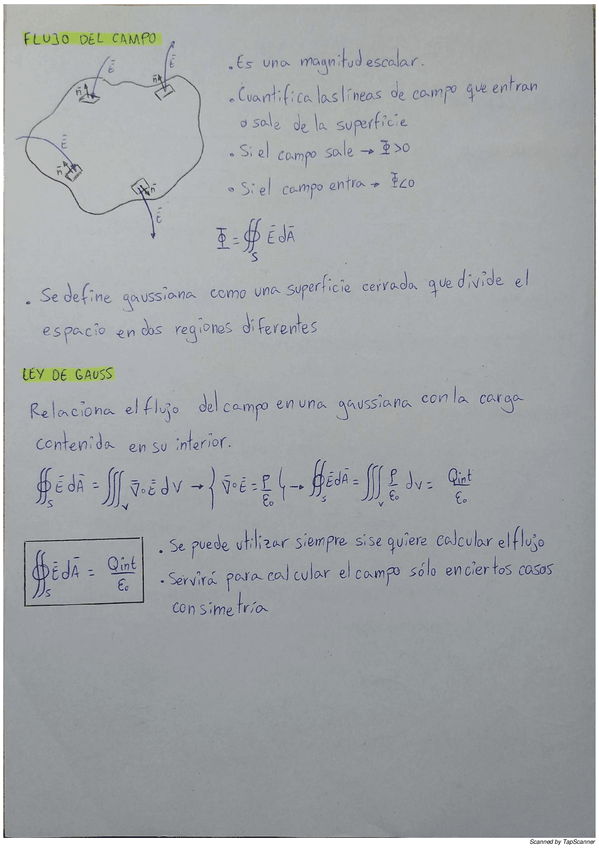 FLUJO DEL CAMPO
Ē
Ē
n̄
n̄
Ē
n̄
n̄
Ē
. Es una magnitud escalar.
. Cuantifica las líneas de campo que entran
o sale de la superficie
. Si el campo sale → Φ>0
. Si el campo entra → Φ<0
Φ = ∯_S Ē dĀ
. Se define gaussiana como una superficie cerrada que divide el
espacio en dos regiones diferentes
LEY DE GAUSS
Relaciona el flujo del campo en una gaussiana con la carga
contenida en su interior.
∯_S Ē dĀ = ∭_V ∇̄∘Ē dV → { ∇̄∘Ē = ρ/ε₀ { → ∯_S Ē dĀ = ∭_V ρ/ε₀ dV = Qint/ε₀
∯_S Ē dĀ = Qint/ε₀
. Se puede utilizar siempre si se quiere calcular el flujo
. Servirá para calcular el campo sólo en ciertos casos
con simetría
Scanned by TapScanner